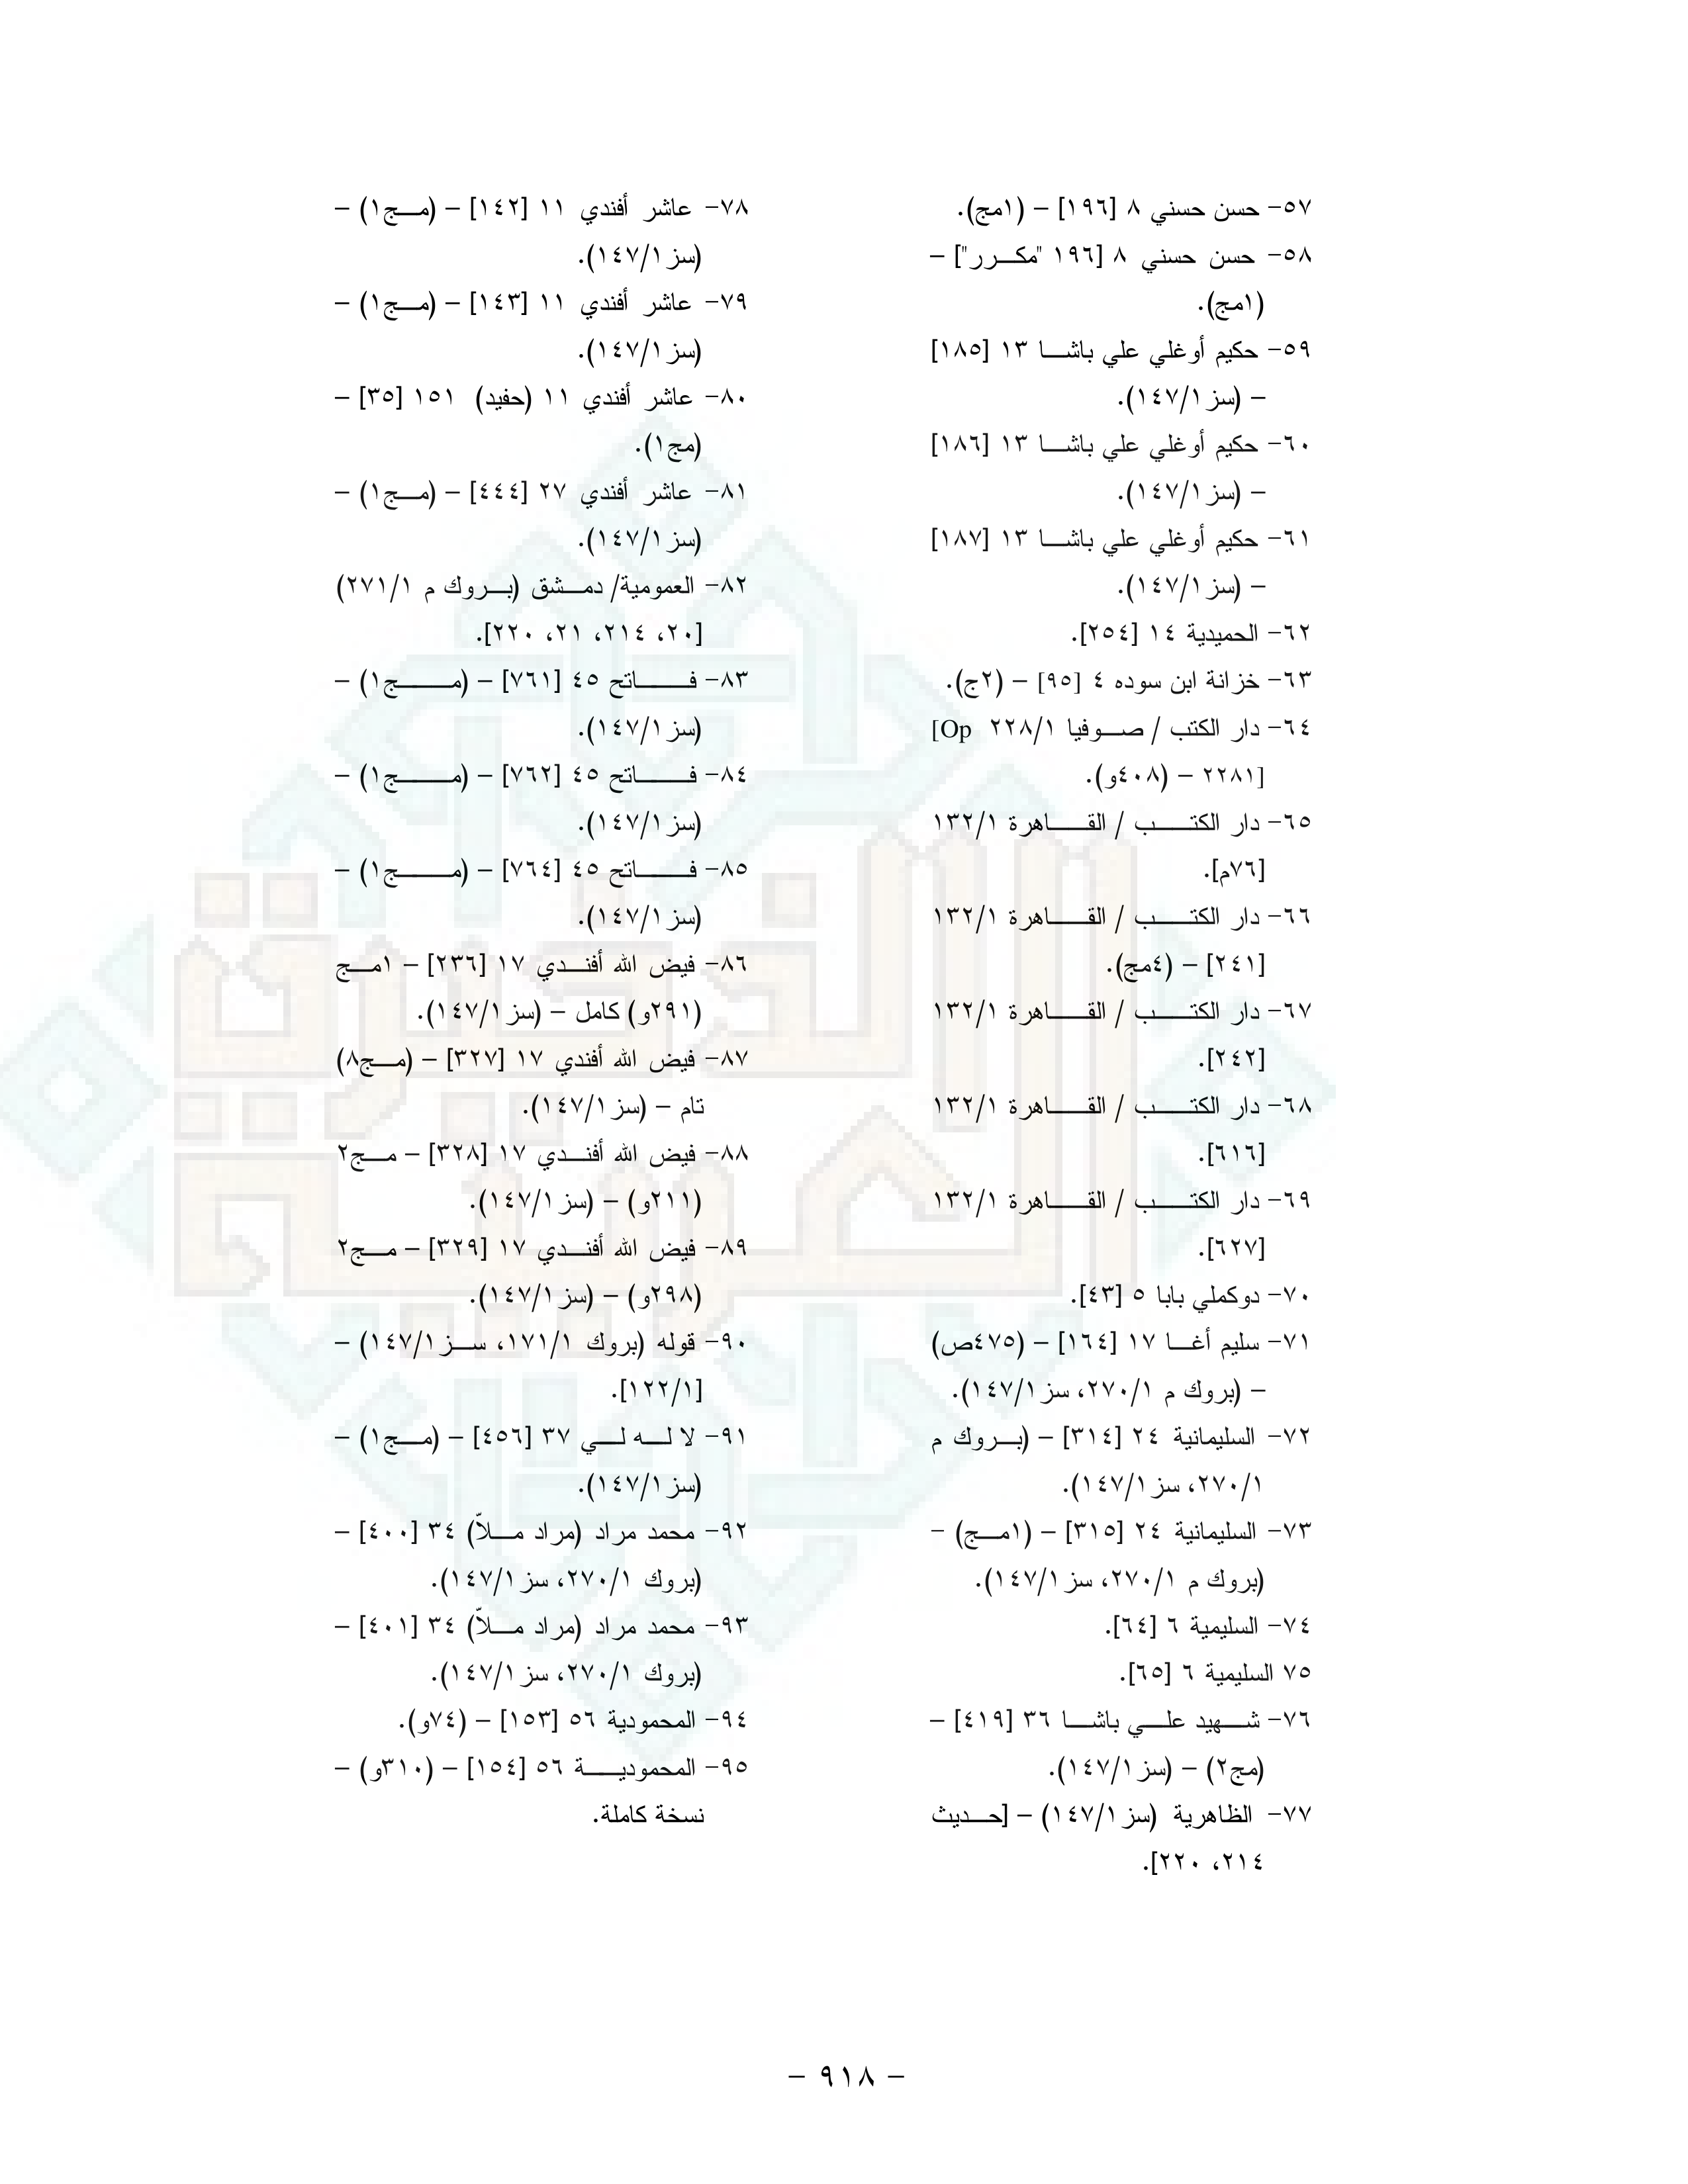 ٥٧- حسن حسني ٨ [١٩٦] – (١مج).
٥٨- حسن حسني ٨ [١٩٦ "مكرر"] –
(١مج).
٥٩- حكيم أوغلي علي باشا ١٣ [١٨٥]
– (سز١/١٤٧).
٦٠- حكيم أوغلي علي باشا ١٣ [١٨٦]
– (سز١/١٤٧).
٦١- حكيم أوغلي علي باشا ١٣ [١٨٧]
– (سز١/١٤٧).
٦٢- الحميدية ١٤ [٢٥٤].
٦٣- خزانة ابن سوده ٤ [٩٥] – (٢ج).
٦٤- دار الكتب / صوفيا ٢٢٨/١ Op]
[٢٢٨١ – (٤٠٨و).
٦٥- دار الكتب / القاهرة ١٣٢/١
[٧٦م].
٦٦- دار الكتب / القاهرة ١٣٢/١
[٢٤١] – (٤مج).
٦٧- دار الكتب / القاهرة ١٣٢/١
[٢٤٢].
٦٨- دار الكتب / القاهرة ١٣٢/١
[٦١٦].
٦٩- دار الكتب / القاهرة ١٣٢/١
[٦٢٧].
٧٠- دوكملي بابا ٥ [٤٣].
٧١- سليم أغا ١٧ [١٦٤] – (٤٧٥ص)
– (بروك م ٢٧٠/١، سز١/١٤٧).
٧٢- السليمانية ٢٤ [٣١٤] – (بروك م
٢٧٠/١، سز١/١٤٧).
٧٣- السليمانية ٢٤ [٣١٥] – (١مج) -
(بروك م ٢٧٠/١، سز١/١٤٧).
٧٤- السليمية ٦ [٦٤].
٧٥ السليمية ٦ [٦٥].
٧٦- شهيد علي باشا ٣٦ [٤١٩] –
(مج٢) – (سز١/١٤٧).
٧٧- الظاهرية (سز١/١٤٧) – [حديث
٢١٤، ٢٢٠].
٧٨- عاشر أفندي ١١ [١٤٢] – (مج١) –
(سز١/١٤٧).
٧٩- عاشر أفندي ١١ [١٤٣] – (مج١) –
(سز١/١٤٧).
٨٠- عاشر أفندي ١١ (حفيد) ١٥١ [٣٥] –
(مج١).
٨١- عاشر أفندي ٢٧ [٤٤٤] – (مج١) –
(سز١/١٤٧).
٨٢- العمومية/ دمشق (بروك م ٢٧١/١)
[٢٠، ٢١٤، ٢١، ٢٢٠].
٨٣- فاتح ٤٥ [٧٦١] – (مج١) –
(سز١/١٤٧).
٨٤- فاتح ٤٥ [٧٦٢] – (مج١) –
(سز١/١٤٧).
٨٥- فاتح ٤٥ [٧٦٤] – (مج١) –
(سز١/١٤٧).
٨٦- فيض الله أفندي ١٧ [٢٣٦] – ١مج
(٢٩١و) كامل – (سز١/١٤٧).
٨٧- فيض الله أفندي ١٧ [٣٢٧] – (مج٨)
تام – (سز١/١٤٧).
٨٨- فيض الله أفندي ١٧ [٣٢٨] – مج٢
(٢١١و) – (سز١/١٤٧).
٨٩- فيض الله أفندي ١٧ [٣٢٩] – مج٢
(٢٩٨و) – (سز١/١٤٧).
٩٠- قوله (بروك ١٧١/١، سز١/١٤٧) –
[١٢٢/١].
٩١- لا له لي ٣٧ [٤٥٦] – (مج١) –
(سز١/١٤٧).
٩٢- محمد مراد (مراد ملاّ) ٣٤ [٤٠٠] –
(بروك ٢٧٠/١، سز١/١٤٧).
٩٣- محمد مراد (مراد ملاّ) ٣٤ [٤٠١] –
(بروك ٢٧٠/١، سز١/١٤٧).
٩٤- المحمودية ٥٦ [١٥٣] – (٧٤و).
٩٥- المحمودية ٥٦ [١٥٤] – (٣١٠و) –
نسخة كاملة.
– ٩١٨ –